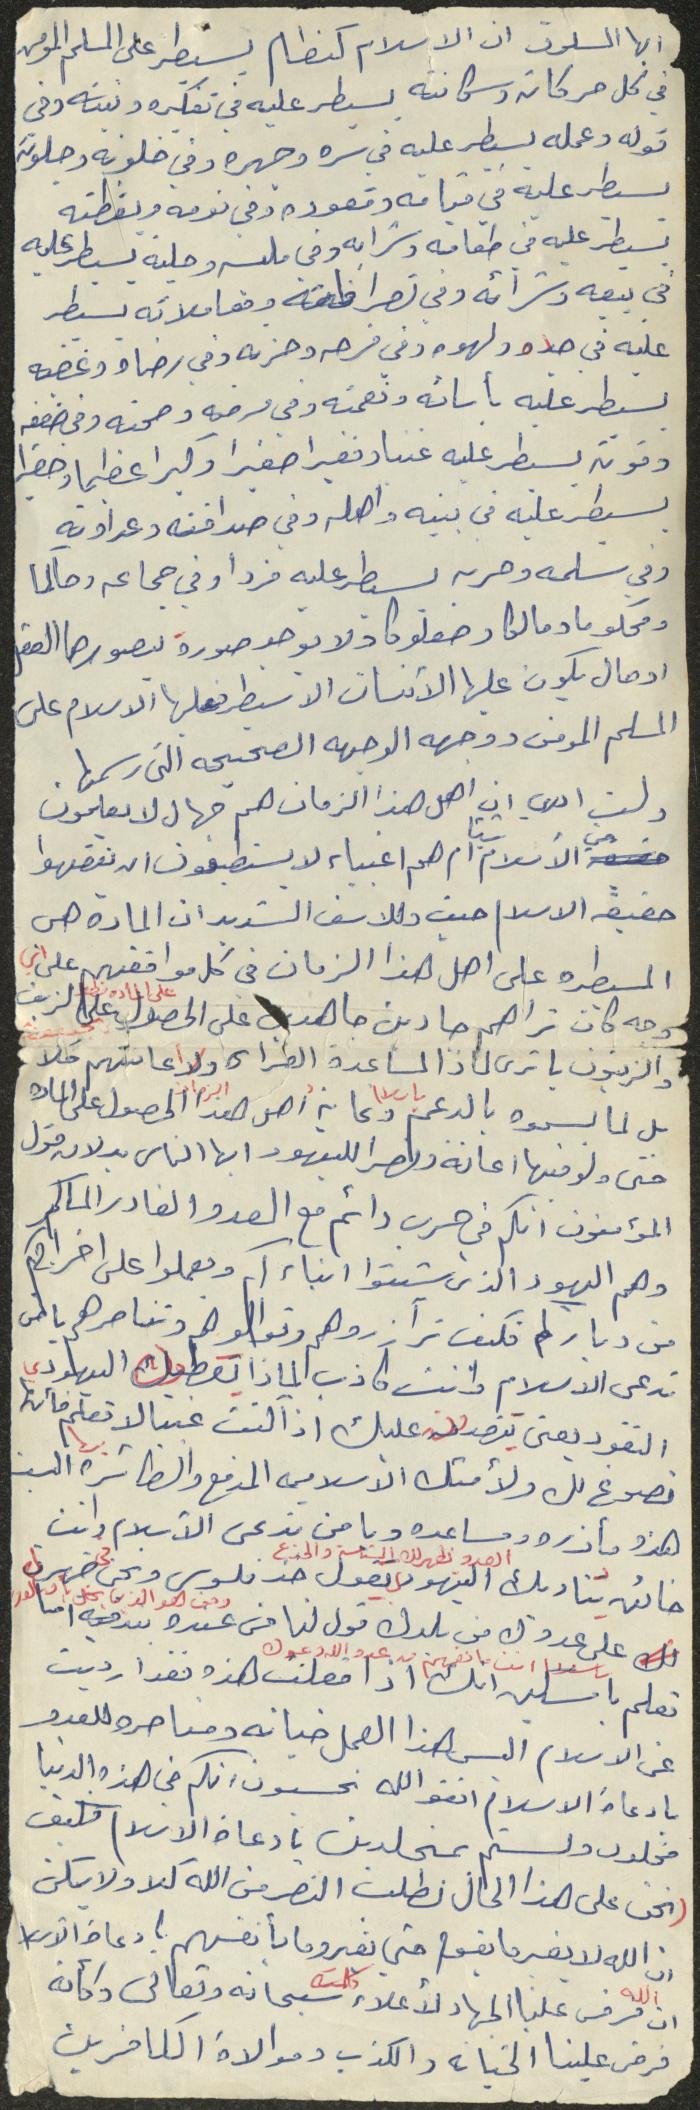 ايها المسلمون ان الاسلام كنظام يسيطر على المسلم المؤمن
في كل حركاته وسكناته يسيطر عليه في تفكيره ونيته وفي
قوله وعمله يسيطر عليه في سره وجهره وفي خلوته وجلوته
يسيطر عليه في قيامه وقعوده وفي نومه ويقظته
يسيطر عليه في طعامه وشرابه وفي ملبسه وحليته يسيطر عليه
في بيعه وشرائه وفي ومعاملاته يسيطر
عليه في جده ولهوه وفي فرحه وحزنه وفي رضاه وغضبه
يسيطر عليه بأسائه ونعمته وفي مرضه وصحته وفي ضعفه
وقوته يسيطر عليه غنيا وفقيرا صغيرا وكبيرا عظيما وحقيرا
يسيطر عليه في بنيه واهله وفي صداقته وعداوته
وفي سلمه وحربه يسيطر عليه فرداً وفي جماعه وحاكما
ومحكوما ومالكا ولا توجد صورة يتصورها العقل
او حال يكون عليها الأنسان الا سيطر عليها الاسلام على
المسلم المؤمن ووجهه الوجهه الصحيحه التي رسمها
ولست ادري ان اهل هذا الزمان هم جهال لا يعلمون
عن الأسلام شيئا أم هم اغبياء لا يستطيعون ان تفقهوا
حقيقة الاسلام حيث وللاسف الشديد ان المادة هي
المسيطره على اهل هذا الزمان في كل مواقفهم على اي
وجه كان تراهم جاهدين على الحصول على الزيف
والزيتون يا ترى لماذا لمساعدة الفقراء ولاعانتهم كلا
بل لما يسموه بالدعم اهل هذا الزمان الحصول على المادة
حتى ولو فيها اعانة ونصرا لليهود ايها الناس
المؤمنون انكم في حرب دائم مع العدو الغادر الماكر
وهم اليهود الذي شتتوا ابناءكم وعملوا على اخراجكم
من دياركم فكيف تآزروهم وتوالوهم وتناصرهم يا من
تدعي الاسلام وانت كاذب لماذا تعطي اليهودي
النقود يعني عليك اذا كنت غبيا لا تعلم فأنها
تصوغ لك ولأمتك الاسلاميه المدفع والطائره اليست
هذه مأزره ومساعده ويا من تدعي الأسلام وانت
العدو يظهر لك البشاشة والخدع
خائن يناديك اليهودي يقول خذ فلوس ونحن
لك على عدوك من بلدك قول لنا من عنده بندقيه اما
تعلم يا مسكين انك اذا فعلت هذه فقد ارتديت
عن الاسلام اليس هذا العمل خيانه ومناصره للعدو
يا دعاة الاسلام اتقو الله تحسبون انكم في هذه الدنيا
مخلدون ولستم بمخلدين يا دعاة الاسلام فكيف
نحن على هذا الحال نطلب النصر من الله كلا ولا يمكن
ان الله لا يغير ما بقوم حتى يغيرو ما بأنفسهم يا دعاة الاسلام
ان الله فرض علينا الجهاد لأعلاء كلمته سبحانه وتعالى وكأنه
فرض علينا الخيانه والكذب وموالاة الكافرين